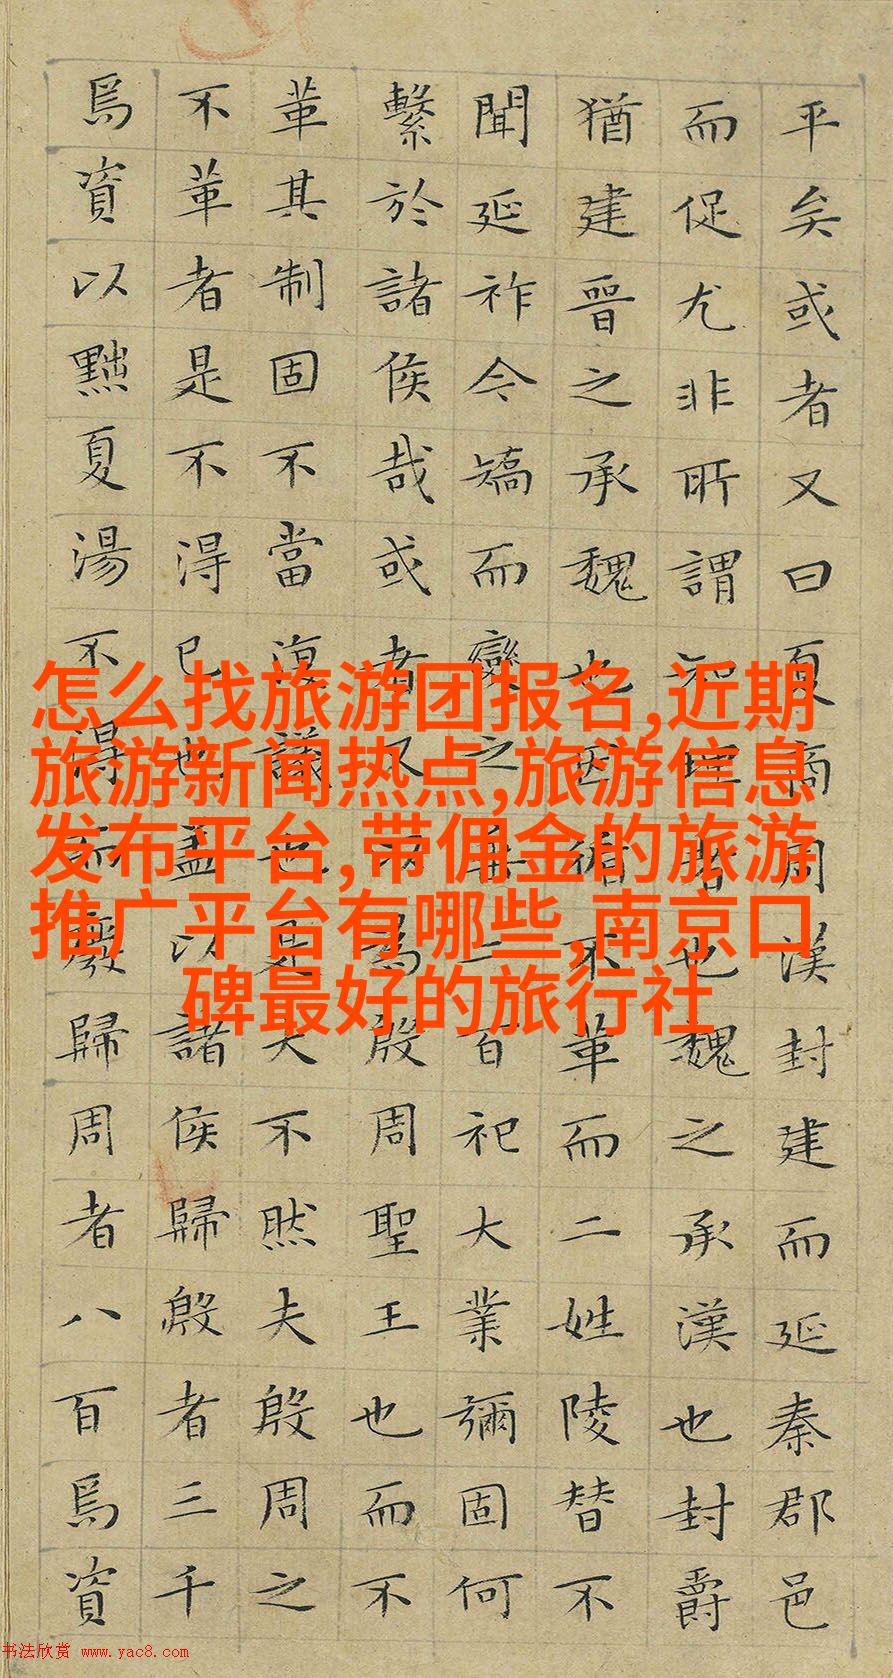 平矣或者又曰夏商周漢封建而延秦郡邑
而促尤非所謂知理者也魏之承漢也封爵
猶建晉之承魏也因循不革而二姓陵替不
聞延祚今矯而變之垂二百祀大業彌固何
繫於諸侯哉或者又以為殷周聖王也而不
革其制固不當復議也是大不然夫殷周之
不革者是不得已也蓋以諸侯歸殷者三千
焉資以黜夏湯不得而廢歸周者八百焉資
怎么找旅游团报名,近期
旅游新闻热点,旅游信息
发布平台,带佣金的旅游
推广平台有哪些,南京口
碑最好的旅行社
书法欣赏 www.yac8.com